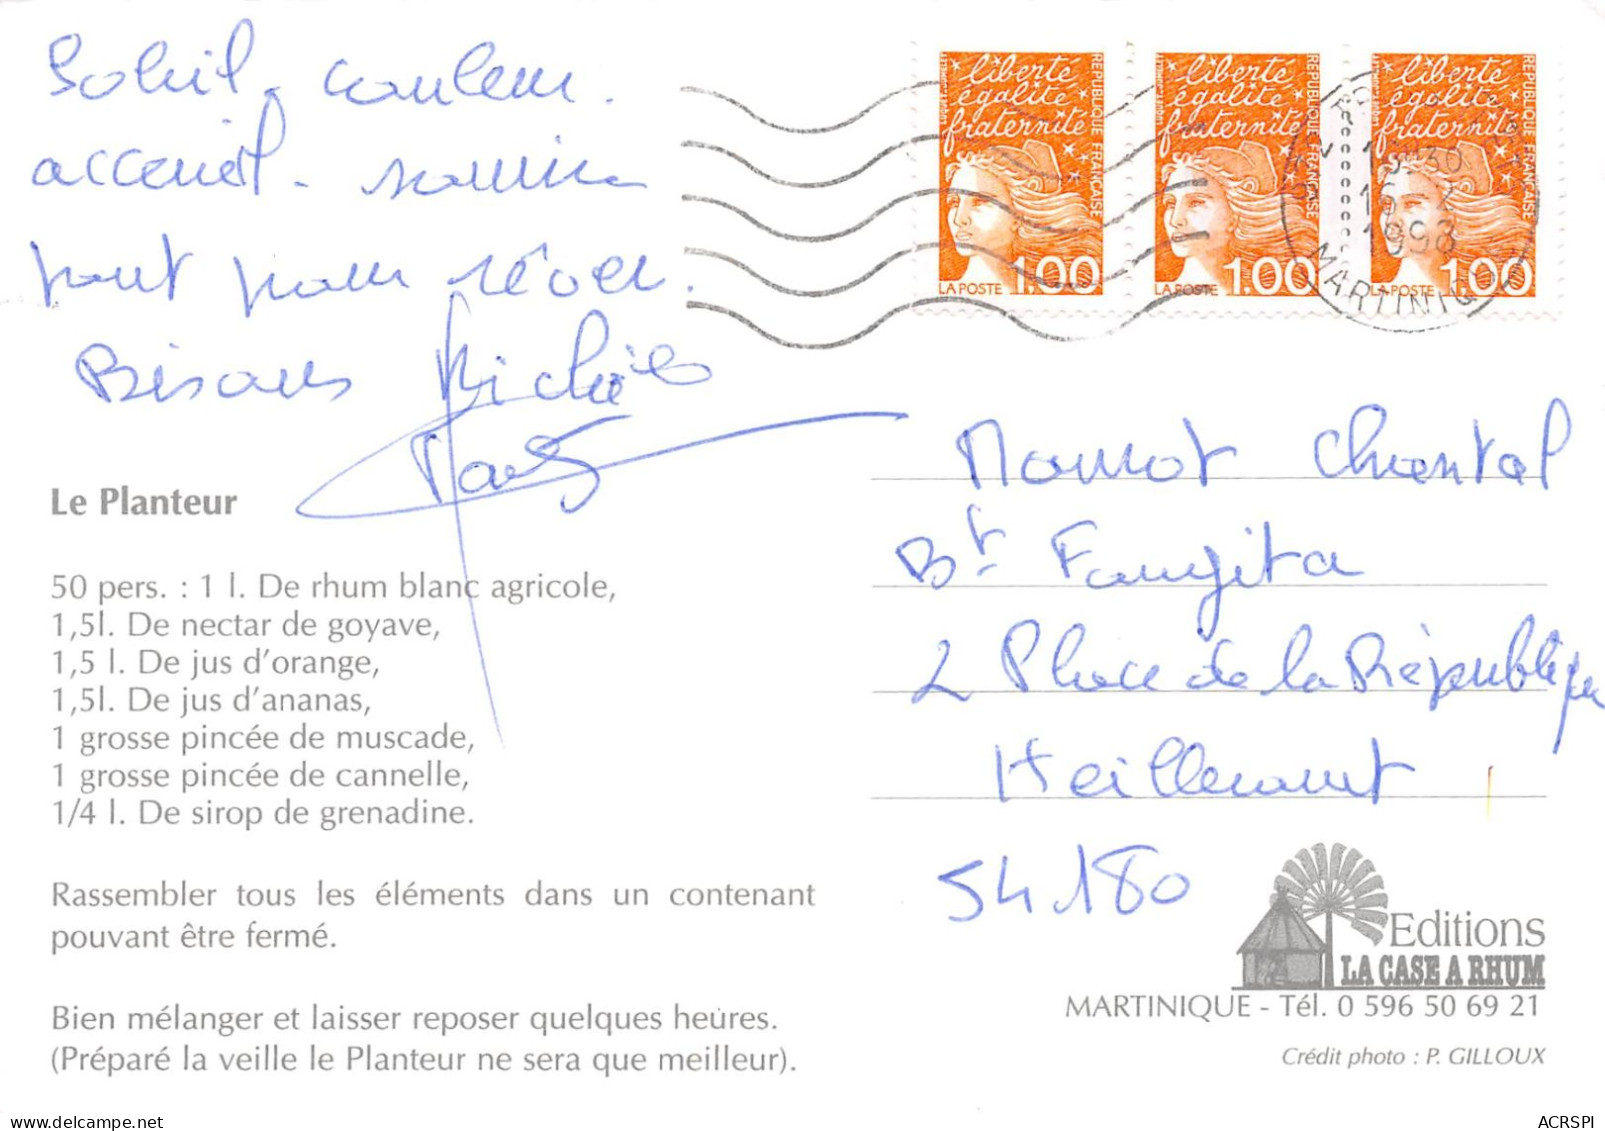 Soleil. couleur.
accueil. sourire
tout pour rêver.
Bisous Michèle
Le Planteur
50 pers. : 1 l. De rhum blanc agricole,
1,5l. De nectar de goyave,
1,5 l. De jus d'orange,
1,5l. De jus d'ananas,
1 grosse pincée de muscade,
1 grosse pincée de cannelle,
1/4 l. De sirop de grenadine.
Rassembler tous les éléments dans un contenant
pouvant être fermé.
Bien mélanger et laisser reposer quelques heures.
(Préparé la veille le Planteur ne sera que meilleur).
liberté
égalité
fraternité
RÉPUBLIQUE FRANÇAISE
LA POSTE 1.00
liberté
égalité
fraternité
RÉPUBLIQUE FRANÇAISE
LA POSTE 1.00
liberté
égalité
fraternité
RÉPUBLIQUE FRANÇAISE
LA POSTE 1.00
1998
MARTINIQUE
Chantal
Bt Faugita
2 Place de la République
Heillecourt
54180
Editions
LA CASE A RHUM
MARTINIQUE - Tél. 0 596 50 69 21
Crédit photo : P. GILLOUX
ACRSPI